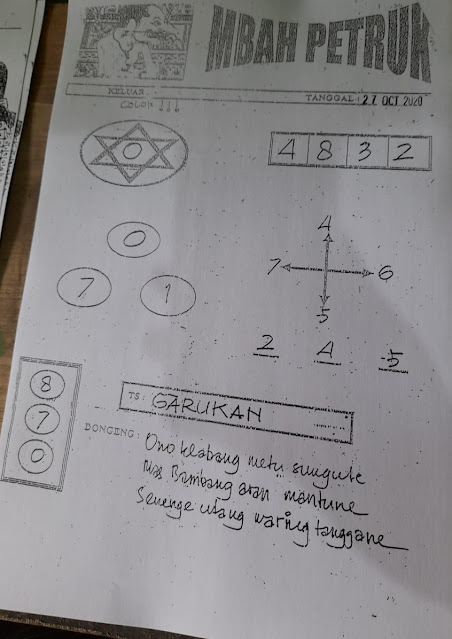 MBAH PETRUK
KELUAR
TANGGAL : 27 OCT 2020
COLOK !!!
0
4 8 3 2
0
7 1
4
7 6
5
2 4 5
8
7
0
TS : GARUKAN
DONGENG : Ono klabang metu sungute
Mas Bambang aran mantune
Senenge utang waring tanggane